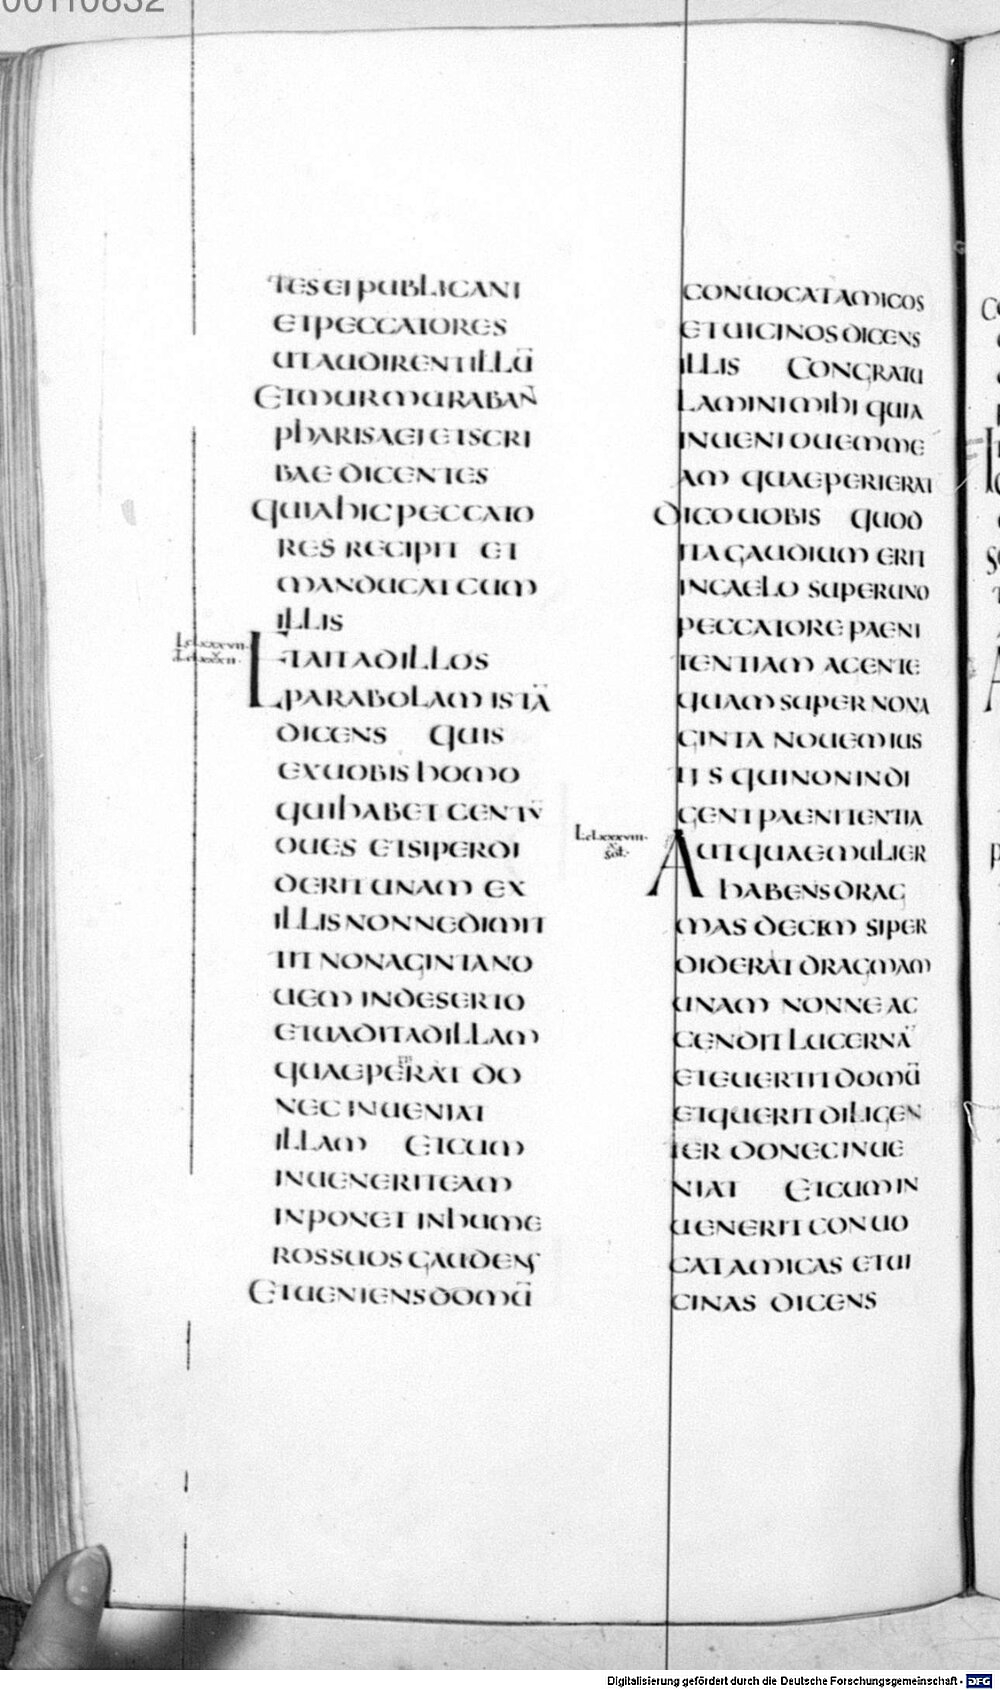 00110832
TES EI PUBLICANI
ET PECCATORES
UT AUDIRENT ILLŪ
ET MURMURABAN̄
PHARISAEI ET SCRI
BAE DICENTES
QUIA HIC PECCATO
RES RECIPIT ET
MANDUCAT CUM
ILLIS
ET AIT AD ILLOS
PARABOLAM ISTĀ
DICENS QUIS
EX UOBIS HOMO
QUI HABET CENTŪ
OUES ET SI PERDI
DERIT UNAM EX
ILLIS NONNE DIMIT
TIT NONAGINTA NO
UEM IN DESERTO
ET UADIT AD ILLAM
QUAE PERRAT DO
NEC INUENIAT
ILLAM ET CUM
INUENERIT EAM
INPONET IN HUME
ROS SUOS GAUDENS
ET UENIENS DOMŪ
CONUOCAT AMICOS
ET UICINOS DICENS
ILLIS CONGRATU
LAMINI MIHI QUIA
INUENI OUEM ME
AM QUAE PERIERAT
DICO UOBIS QUOD
ITA GAUDIUM ERIT
IN CAELO SUPER UNO
PECCATORE PAENI
TENTIAM AGENTE
QUAM SUPER NONA
GINTA NOUEM IUS
TIS QUI NON INDI
GENT PAENITENTIA
AUT QUAE MULIER
HABENS DRAG
MAS DECEM SI PER
DIDERAT DRAGMAM
UNAM NONNE AC
CENDIT LUCERNĀ
ET EUERTIT DOMŪ
ET QUERIT DILIGEN
TER DONEC INUE
NIAT ET CUM IN
UENERIT CONUO
CAT AMICAS ET UI
CINAS DICENS
Digitalisierung gefördert durch die Deutsche Forschungsgemeinschaft - DFG